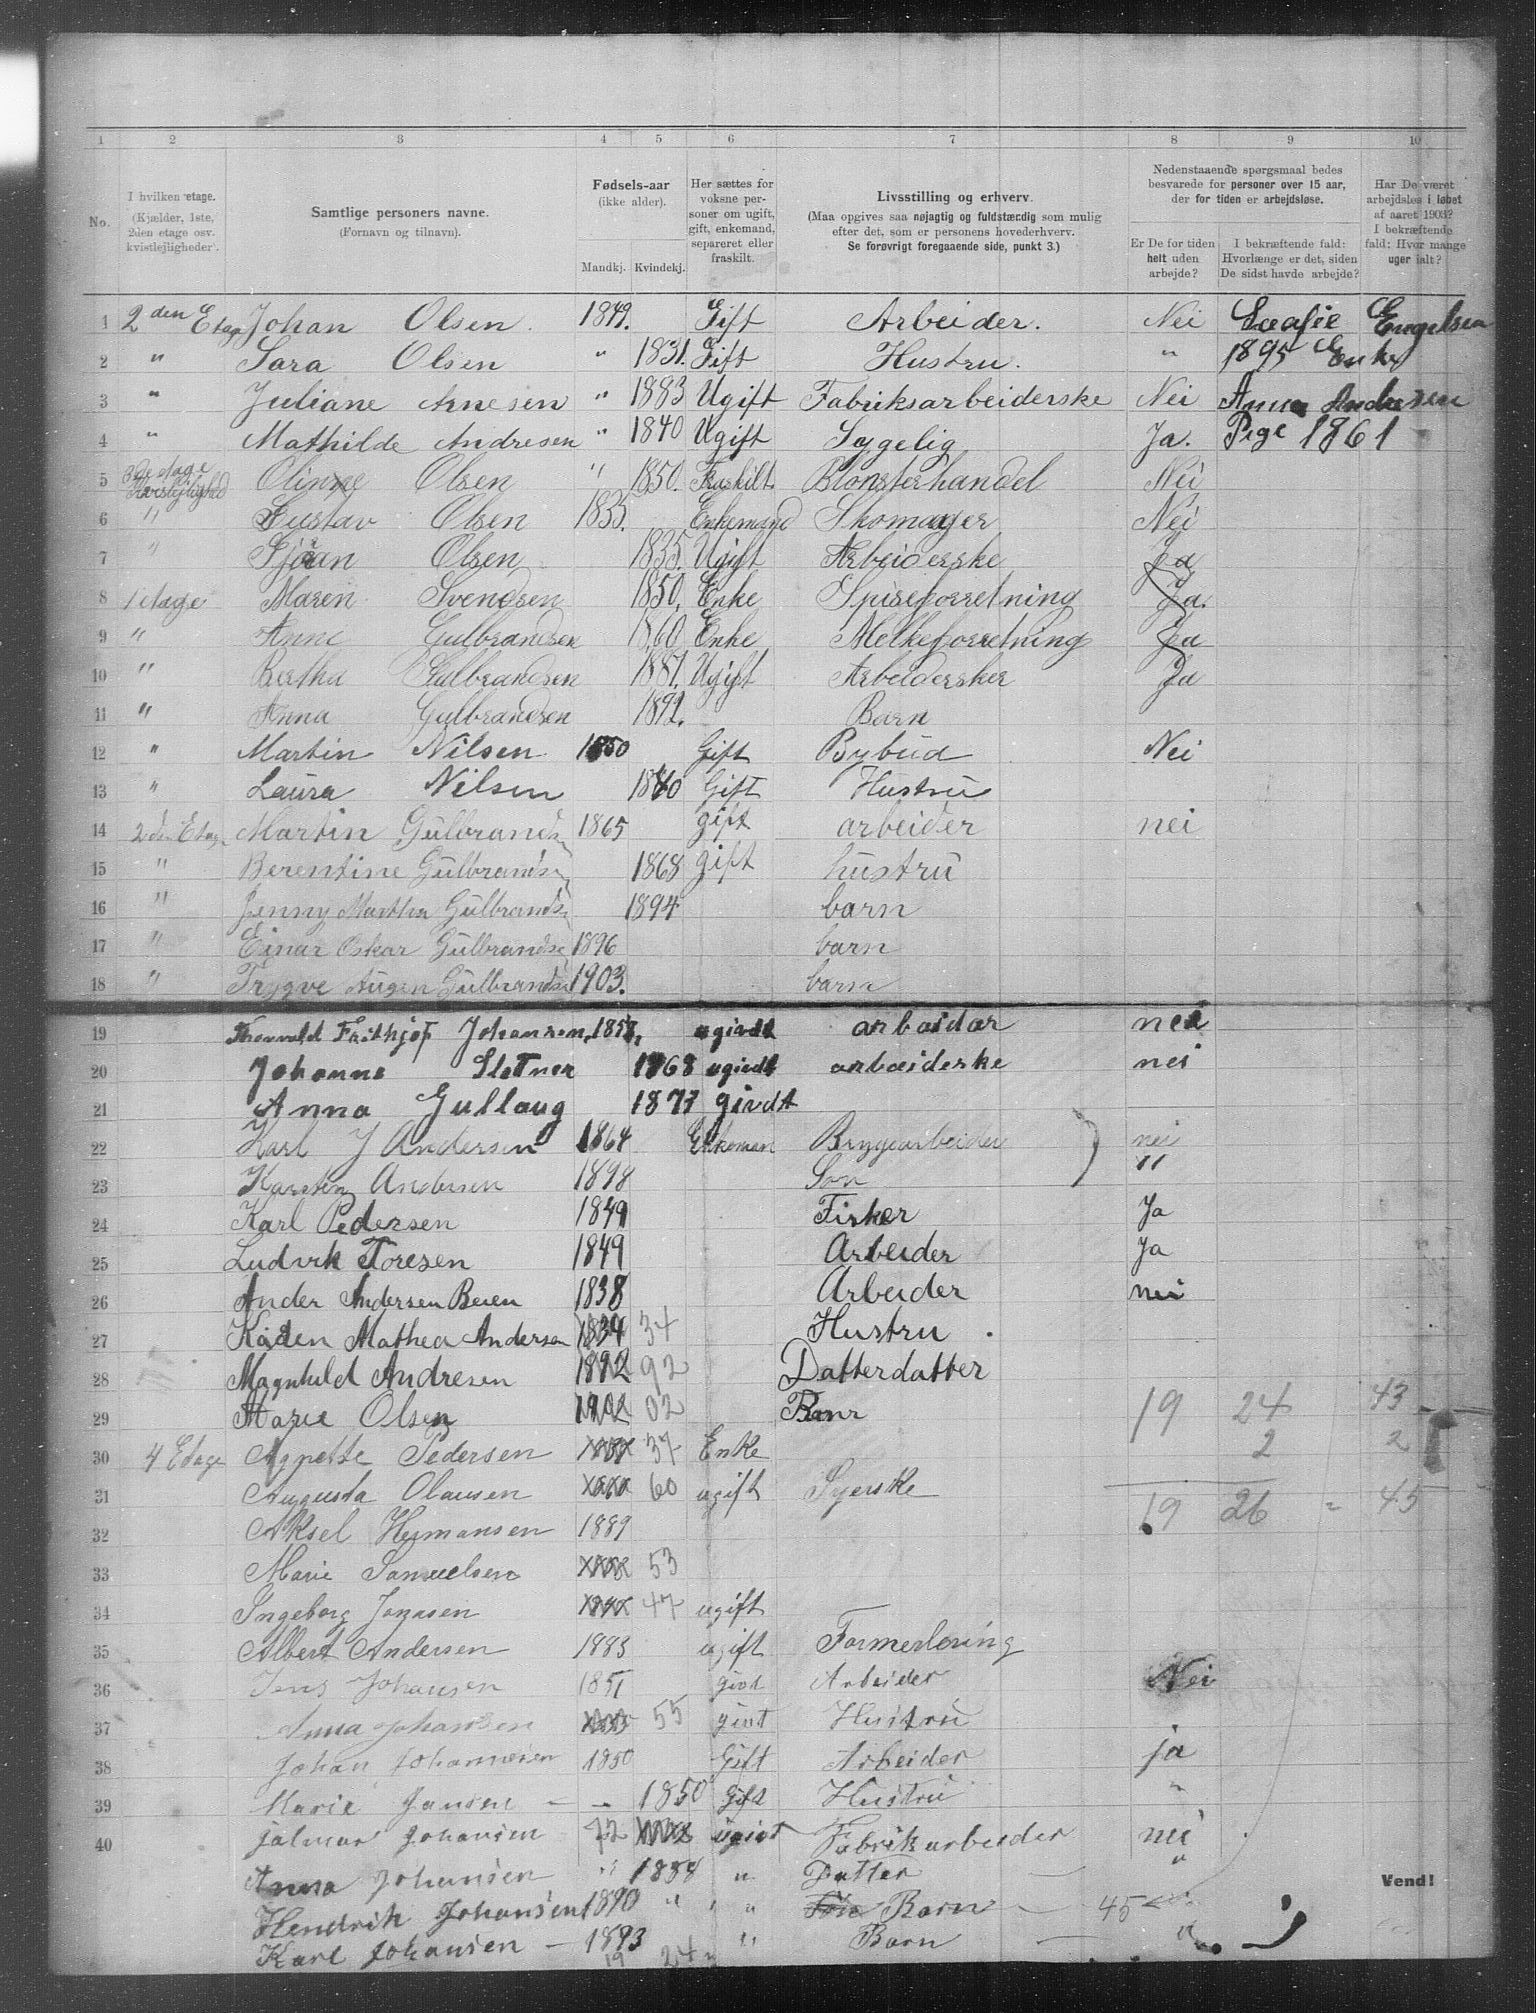 1 2 3 4 5 6 7 8 9 10
No.
I hvilken etage.
(Kjælder, 1ste,
2den etage osv.
kvistlejligheder).
Samtlige personers navne.
(Fornavn og tilnavn).
Fødsels-aar
(ikke alder).
Mandkj. Kvindekj.
Her sættes for
voksne per-
soner om ugift,
gift, enkemand,
separeret eller
fraskilt.
Livsstilling og erhverv.
(Maa opgives saa nøjagtig og fuldstændig som mulig
efter det, som er personens hovederhverv.
Se forøvrigt foregaaende side, punkt 3.)
Nedenstaaende spørgsmaal bedes
besvarede for personer over 15 aar,
der for tiden er arbejdsløse.
Er De for tiden
helt uden
arbejde?
I bekræftende fald:
Hvorlænge er det, siden
De sidst havde arbejde?
Har De været
arbejdsløs i løbet
af aaret 1903?
I bekræftende
fald: Hvor mange
uger ialt?
1 2den Etage Johan Olsen. 1849. Gift Arbeider. Nei Engelsen
2 " Sara Olsen " 1831. Gift Hustru. " 1895 Enke
3 " Juliane Arnesen " 1883 Ugift Fabriksarbeiderske Nei Anna Andersen
4 " Mathilde Andresen " 1840 Ugift Sygelig Ja. Pige 1861
5 3de etage Kvistlejlighed Olinne Olsen " 1850. Fraskilt Blomsterhandel Nei
6 " Gustav Olsen 1835. Enkemand Skomager Nei
7 " Olsen 1835. Ugift Arbeiderske Ja
8 1 etage Maren Svendsen 1850. Enke Spiseforretning Ja.
9 " Anne Gulbrandsen 1860 Enke Melkeforretning Ja
10 " Bertha Gulbrandsen 1881. Ugift Arbeidersker Ja
11 " Anna Gulbrandsen 1892. Barn
12 " Martin Nilsen 1850 Gift Bybud Nei
13 " Laura Nilsen 1840 Gift Hustru
14 2den Etage Martin Gulbrands 1865 gift arbeider nei
15 " Berentine Gulbrands 1868 gift hustru
16 " Jenny Martha Gulbrands 1894 barn
17 " Einar Oskar Gulbrandse 1896 barn
18 " Trygve Augen Gulbrandse 1903. barn
19 Thorvald Frithjof Johansen, 1858, ugivdt arbaidar nei
20 Johanne Sletner 1868 ugivdt arbaideske nei
21 Anna Gullaug 1877 givdt
22 Karl J Andersen 1864 Enkeman Bryggearbeider nei
23 Karsten Andersen 1898 Søn "
24 Karl Pedersen 1849 Fisker Ja
25 Ludvik Toresen 1849 Arbeider Ja
26 Ander Andersen Beien 1838 Arbeider nei
27 Karen Mathea Andersen 1834 34 Hustru .
28 Magnhild Andresen 1892 92 Datterdatter
29 Marie Olsen 1902 02 Barn 19 24 43
2 2
30 4 Etage Agnette Pedersen 1837 37 Enke
31 Augusta Olausen 1860 60 ugift Syerske 19 26 = 45
32 Aksel Hermansen 1889
33 Marie Samuelsen 53
34 Ingeborg Jonasen 47 ugift
35 Albert Andersen 1883 ugift Formerlæring
36 Jens Johansen 1851 givt Arbeider Nei
37 Anna Johansen 55 givt Hustru
38 Johan Johannesen 1850 Gift Arbeider ja
39 Marie Jansen — — 1850 Gift Hustru "
40 Jalmar Johansen 72 ugivt Fabrikarbeider nei
Anna Johansen " 1884 " Datter — "
Hendrik Johansen 1890 " " Barn — 45
Karl Johansen — 1893 " Barn — "
19 24
Vend!